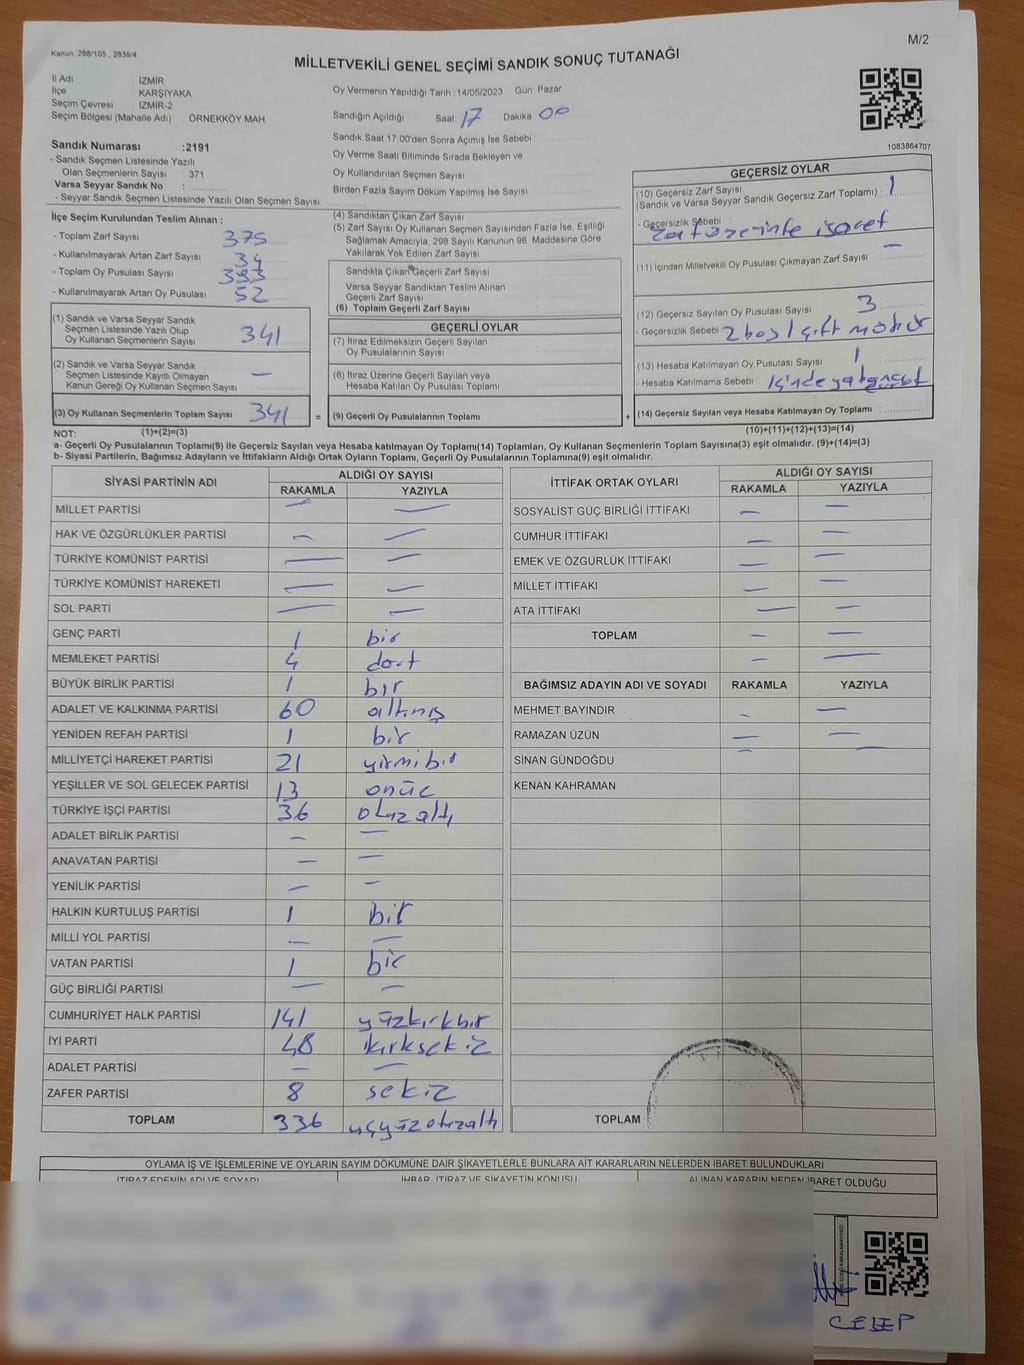 Kanun, 298/105 , 2839/4
M/2
MİLLETVEKİLİ GENEL SEÇİMİ SANDIK SONUÇ TUTANAĞI
İl Adı : İZMİR
İlçe : KARŞIYAKA
Seçim Çevresi : İZMİR-2
Seçim Bölgesi (Mahalle Adı) : ÖRNEKKÖY MAH.
Oy Vermenin Yapıldığı Tarih :14/05/2023 Gün Pazar
Sandığın Açıldığı Saat : 17 Dakika 00
Sandık Saat 17.00'den Sonra Açımış İse Sebebi :
Oy Verme Saati Bitiminde Sırada Bekleyen ve
Oy Kullandırılan Seçmen Sayısı
Birden Fazla Sayım Döküm Yapılmış İse Sayısı
1083864707
Sandık Numarası :2191
- Sandık Seçmen Listesinde Yazılı
Olan Seçmenlerin Sayısı : 371
Varsa Seyyar Sandık No :
- Seyyar Sandık Seçmen Listesinde Yazılı Olan Seçmen Sayısı:
İlçe Seçim Kurulundan Teslim Alınan ;
- Toplam Zarf Sayısı 375
- Kullanılmayarak Artan Zarf Sayısı 34
- Toplam Oy Pusulası Sayısı 393
- Kullanılmayarak Artan Oy Pusulası 52
(1) Sandık ve Varsa Seyyar Sandık
Seçmen Listesinde Yazılı Olup
Oy Kullanan Seçmenlerin Sayısı 341
(2) Sandık ve Varsa Seyyar Sandık
Seçmen Listesinde Kayıtlı Olmayan
Kanun Gereği Oy Kullanan Seçmen Sayısı —
(3) Oy Kullanan Seçmenlerin Toplam Sayısı 341 =
(1)+(2)=(3)
(4) Sandıktan Çıkan Zarf Sayısı
(5) Zarf Sayısı Oy Kullanan Seçmen Sayısından Fazla İse, Eşitliği
Sağlamak Amacıyla, 298 Sayılı Kanunun 98. Maddesine Göre
Yakılarak Yok Edilen Zarf Sayısı
Sandıkta Çıkan Geçerli Zarf Sayısı
Varsa Seyyar Sandıktan Teslim Alınan
Geçerli Zarf Sayısı
(6) Toplam Geçerli Zarf Sayısı
GEÇERLİ OYLAR
(7) İtiraz Edilmeksizin Geçerli Sayılan
Oy Pusulalarının Sayısı
(8) İtiraz Üzerine Geçerli Sayılan veya
Hesaba Katılan Oy Pusulası Toplamı
(9) Geçerli Oy Pusulalarının Toplamı +
GEÇERSİZ OYLAR
(10) Geçersiz Zarf Sayısı
(Sandık ve Varsa Seyyar Sandık Geçersiz Zarf Toplamı) : 1
- Geçersizlik Sebebi : Zarf üzerinte işaret
(11) İçinden Milletvekili Oy Pusulası Çıkmayan Zarf Sayısı —
(12) Geçersiz Sayılan Oy Pusulası Sayısı 3
- Geçersizlik Sebebi 2 boş 1 çift mühür
(13) Hesaba Katılmayan Oy Pusulası Sayısı 1
- Hesaba Katılmama Sebebi
(14) Geçersiz Sayılan veya Hesaba Katılmayan Oy Toplamı :
(10)+(11)+(12)+(13)=(14)
NOT:
a- Geçerli Oy Pusulalarının Toplamı(9) ile Geçersiz Sayılan veya Hesaba katılmayan Oy Toplamı(14) Toplamları, Oy Kullanan Seçmenlerin Toplam Sayısına(3) eşit olmalıdır. (9)+(14)=(3)
b- Siyasi Partilerin, Bağımsız Adayların ve İttifakların Aldığı Ortak Oyların Toplamı, Geçerli Oy Pusulalarının Toplamına(9) eşit olmalıdır.
SİYASİ PARTİNİN ADI ALDIĞI OY SAYISI
RAKAMLA YAZIYLA
MİLLET PARTİSİ — —
HAK VE ÖZGÜRLÜKLER PARTİSİ — —
TÜRKİYE KOMÜNİST PARTİSİ — —
TÜRKİYE KOMÜNİST HAREKETİ — —
SOL PARTİ — —
GENÇ PARTİ 1 bir
MEMLEKET PARTİSİ 4 dört
BÜYÜK BİRLİK PARTİSİ 1 bir
ADALET VE KALKINMA PARTİSİ 60 altmış
YENİDEN REFAH PARTİSİ 1 bir
MİLLİYETÇİ HAREKET PARTİSİ 21 yirmibir
YEŞİLLER VE SOL GELECEK PARTİSİ 13 onüç
TÜRKİYE İŞÇİ PARTİSİ 36 otuz altı
ADALET BİRLİK PARTİSİ — —
ANAVATAN PARTİSİ — —
YENİLİK PARTİSİ — —
HALKIN KURTULUŞ PARTİSİ 1 bir
MİLLİ YOL PARTİSİ — —
VATAN PARTİSİ 1 bir
GÜÇ BİRLİĞİ PARTİSİ — —
CUMHURİYET HALK PARTİSİ 141 yüzkırkbir
İYİ PARTİ 48 kırksekiz
ADALET PARTİSİ — —
ZAFER PARTİSİ 8 sekiz
TOPLAM 336 üçyüzotuzaltı
İTTİFAK ORTAK OYLARI ALDIĞI OY SAYISI
RAKAMLA YAZIYLA
SOSYALİST GÜÇ BİRLİĞİ İTTİFAKI — —
CUMHUR İTTİFAKI — —
EMEK VE ÖZGÜRLÜK İTTİFAKI — —
MİLLET İTTİFAKI — —
ATA İTTİFAKI — —
TOPLAM — —
— —
BAĞIMSIZ ADAYIN ADI VE SOYADI RAKAMLA YAZIYLA
MEHMET BAYINDIR — —
RAMAZAN ÜZÜN — —
SİNAN GÜNDOĞDU — —
KENAN KAHRAMAN
TOPLAM
OYLAMA İŞ VE İŞLEMLERİNE VE OYLARIN SAYIM DÖKÜMÜNE DAİR ŞİKAYETLERLE BUNLARA AİT KARARLARIN NELERDEN İBARET BULUNDUKLARI
İTİRAZ EDENİN ADI VE SOYADI İHBAR, İTİRAZ VE ŞİKAYETİN KONUSU ALINAN KARARIN NEDEN İBARET OLDUĞU
CELEP